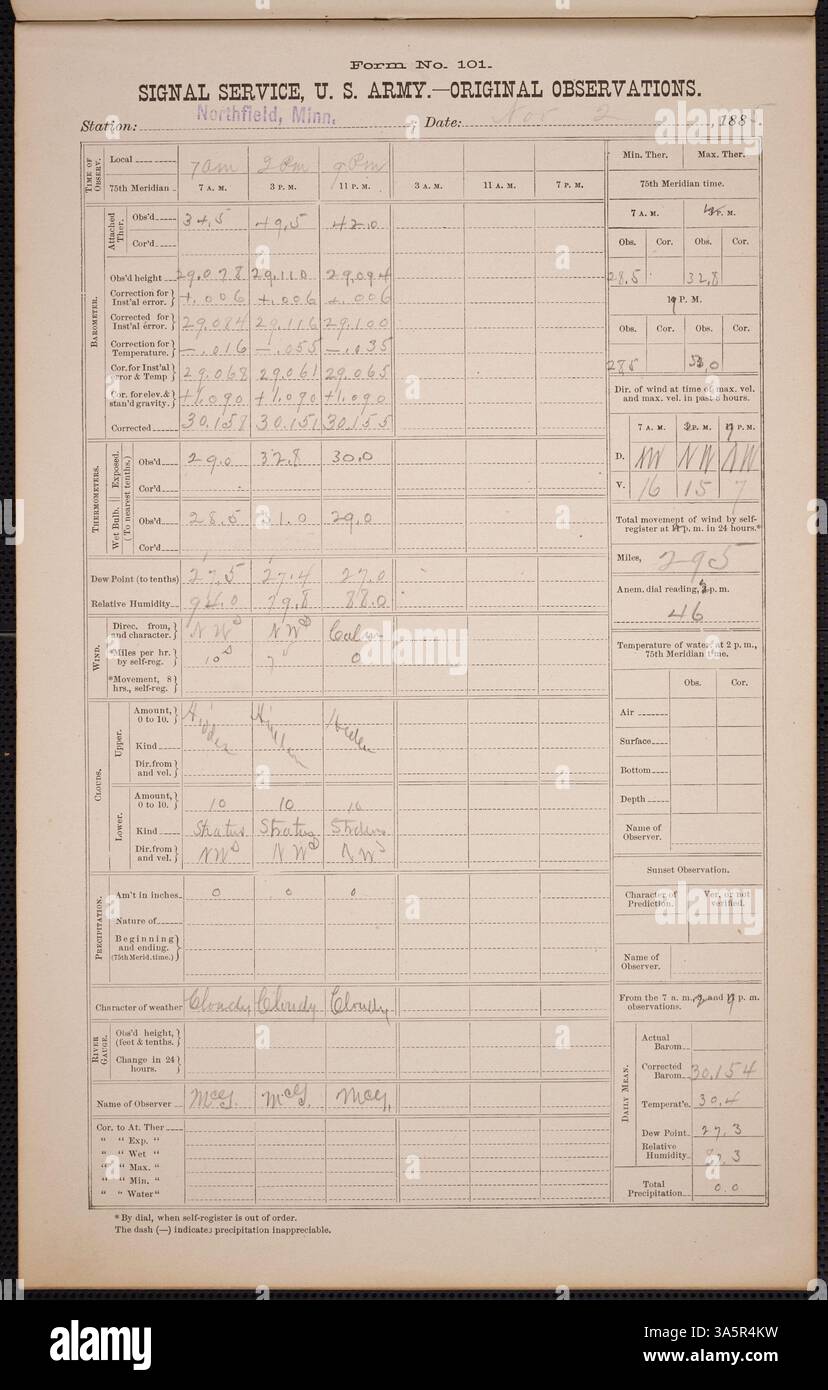 Form No. 101.
SIGNAL SERVICE, U. S. ARMY.—ORIGINAL OBSERVATIONS.
Station: Northfield, Minn. ; Date: Nov 2 , 1885.
TIME OF OBSERV.
Local 7 am 2 Pm 9 Pm
75th Meridian 7 A. M. 3 P. M. 11 P. M. 3 A. M. 11 A. M. 7 P. M.
Attached Ther.
Obs'd 34.5 49.5 42.0
Cor'd
BAROMETER.
Obs'd height 29.078 29.110 29.094
Correction for Inst'al error. +.006 +.006 +.006
Corrected for Inst'al error. 29.084 29.116 29.100
Correction for Temperature. —.016 —.055 —.035
Cor. for Inst'al error & Temp 29.068 29.061 29.065
Cor. for elev. & stan'd gravity. +1.090 +1.090 +1.090
Corrected 30.158 30.151 30.155
THERMOMETERS.
(To nearest tenths.)
Exposed.
Obs'd 29.0 32.8 30.0
Cor'd
Wet Bulb.
Obs'd 28.5 31.0 29.0
Cor'd
Dew Point (to tenths) 27.5 27.4 27.0
Relative Humidity 94.0 79.8 88.0
WIND.
Direc. from, and character. NW NW Calm
*Miles per hr. by self-reg. 10 7 0
*Movement, 8 hrs., self-reg.
CLOUDS.
Upper.
Amount, 0 to 10. Hidden Hidden Hidden
Kind
Dir. from and vel.
Lower.
Amount, 0 to 10. 10 10 10
Kind Stratus Stratus Stratus
Dir. from and vel. NW NW NW
PRECIPITATION.
Am't in inches 0 0 0
Nature of
Beginning and ending. (75th Merid. time.)
Character of weather Cloudy Cloudy Cloudy
RIVER GAUGE.
Obs'd height, (feet & tenths.)
Change in 24 hours.
Name of Observer McG. McG. McG.
Cor. to At. Ther
" " Exp. "
" " Wet "
" " Max. "
" " Min. "
" " Water "
* By dial, when self-register is out of order.
The dash (—) indicates precipitation inappreciable.
Min. Ther. Max. Ther.
75th Meridian time.
7 A. M. P. M.
Obs. Cor. Obs. Cor.
28.5 32.8
P. M.
Obs. Cor. Obs. Cor.
28.5
Dir. of wind at time of max. vel. and max. vel. in past 8 hours.
7 A. M. P. M. P. M.
D. NW NW NW
V. 16 15 7
Total movement of wind by self-register at p. m. in 24 hours.*
Miles, 295
Anem. dial reading, p. m.
46
Temperature of water, at 2 p. m., 75th Meridian time.
Obs. Cor.
Air
Surface
Bottom
Depth
Name of Observer.
Sunset Observation.
Character of Prediction. Ver. or not verified.
Name of Observer.
From the 7 a. m., 2 and 9 p. m. observations.
DAILY MEAN.
Actual Barom.
Corrected Barom. 30.154
Temperat'e. 30.4
Dew Point. 27.3
Relative Humidity.
Total Precipitation. 0.0
alamy
Image ID: 3A5R4KW
www.alamy.com